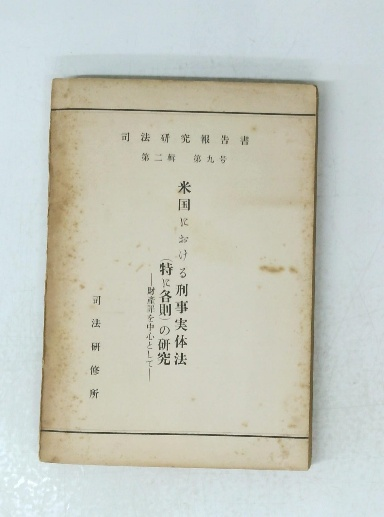 司法研究報告書
第二輯　第九号
米国における刑事実体法
（特に各則）の研究
―財産罪を中心として―
司法研修所